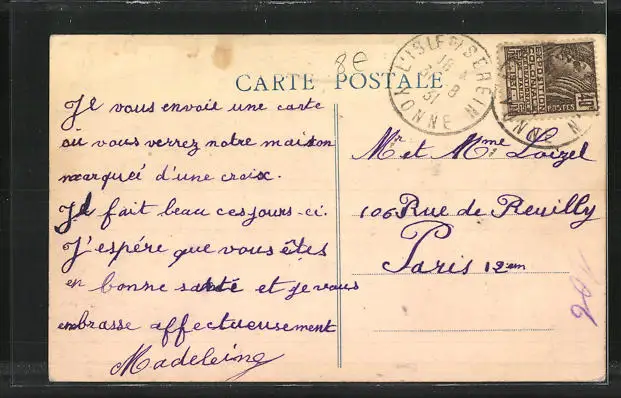 8e
CARTE POSTALE
L'ISLE S/ SEREIN
16
8
31
YONNE
POSTES
Je vous envoie une carte
où vous verrez notre maison
marquée d'une croix.
Il fait beau ces jours-ci.
J'espére que vous êtes
en bonne santé et je vous
embrasse affectueusement
Madeleine
Mr et Mme Loizel
106 Rue de Reuilly
Paris 12em